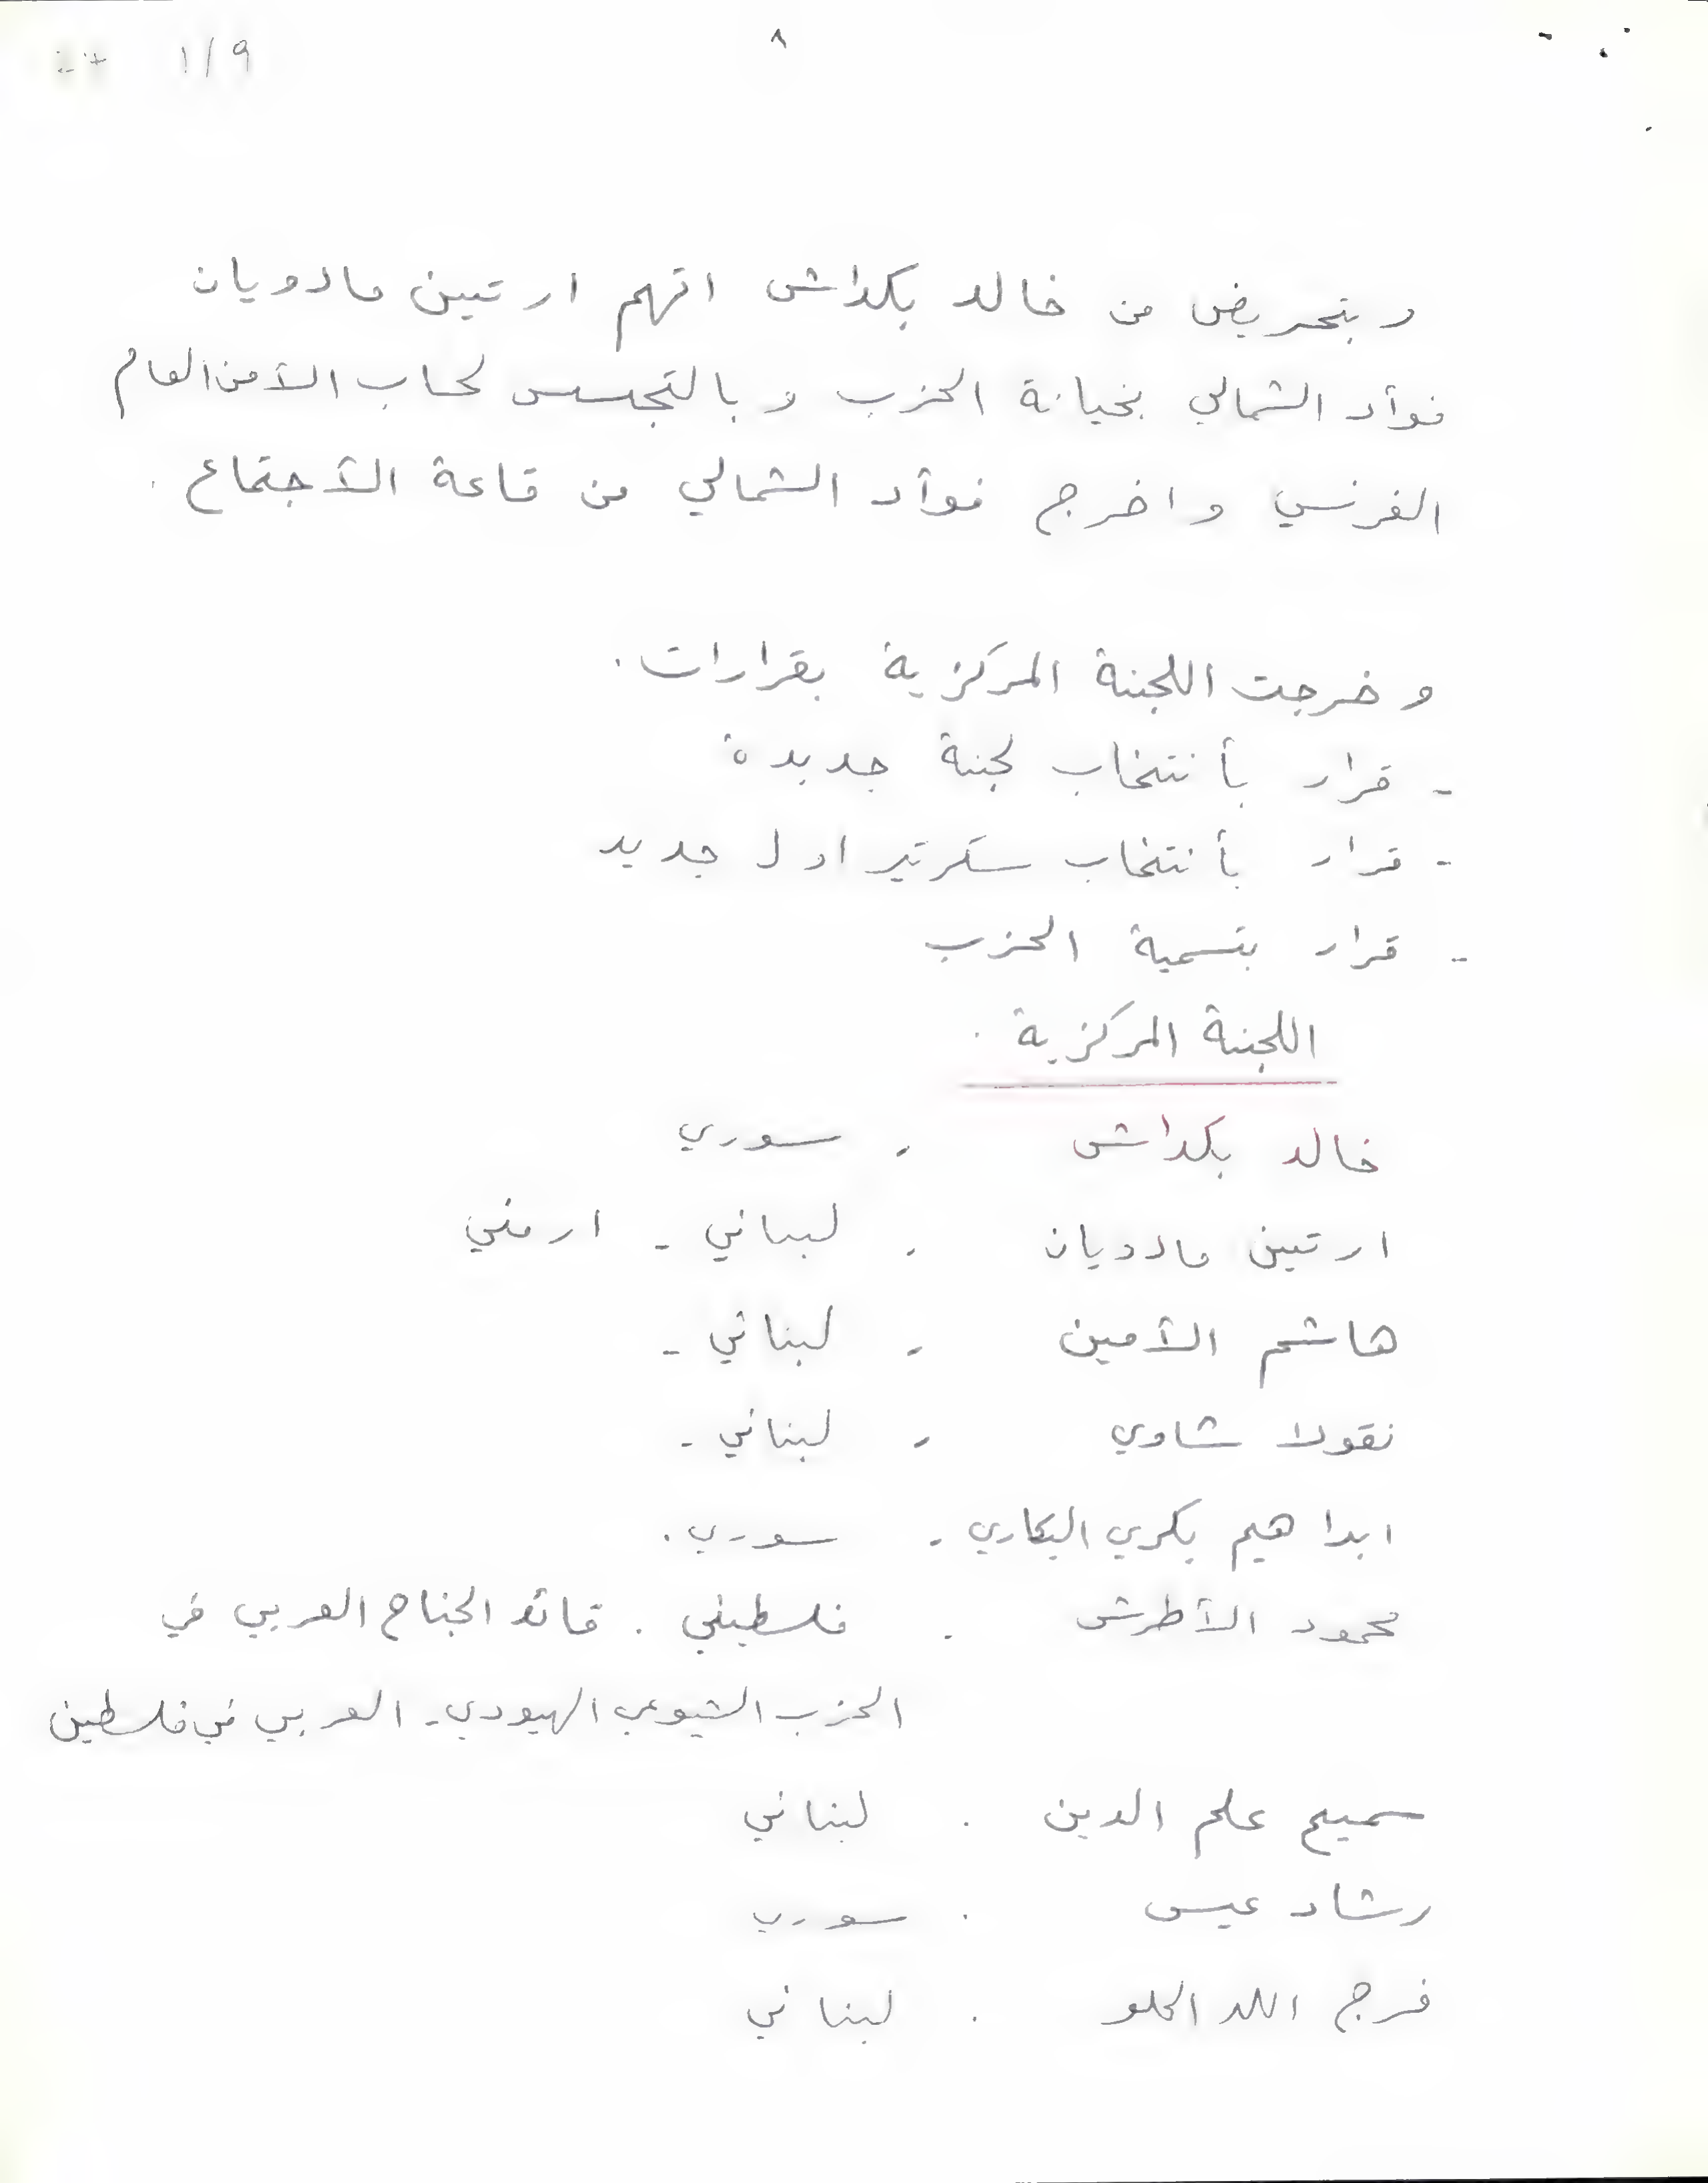 ٨
١/٩
وبتحريض من خالد بكداش اتهم ارتين مادويان
فوأد الشمالي بخيانة الحزب وبالتجسس لحساب الأمن العام
الفرنسي واخرج فوأد الشمالي من قاعة الأجتماع .
وخرجت اللجنة المركزية بقرارات .
- قرار بأنتخاب لجنة جديدة
- قرار بأنتخاب سكرتير اول جديد
- قرار بتسمية الحزب
اللجنة المركزية .
خالد بكداش . سوري
ارتين مادديان . لبناني - ارمني
هاشم الأمين . لبناني -
نقولا شاوي . لبناني -
ابراهيم بكري البكاري . سوري .
محمود الأطرش . فلسطيني . قائد الجناح العربي في
الحزب الشيوعي اليهودي - العربي في فلسطين
سميح علم الدين . لبناني
رشاد عيسى . سوري
فرج الله الحلو . لبناني